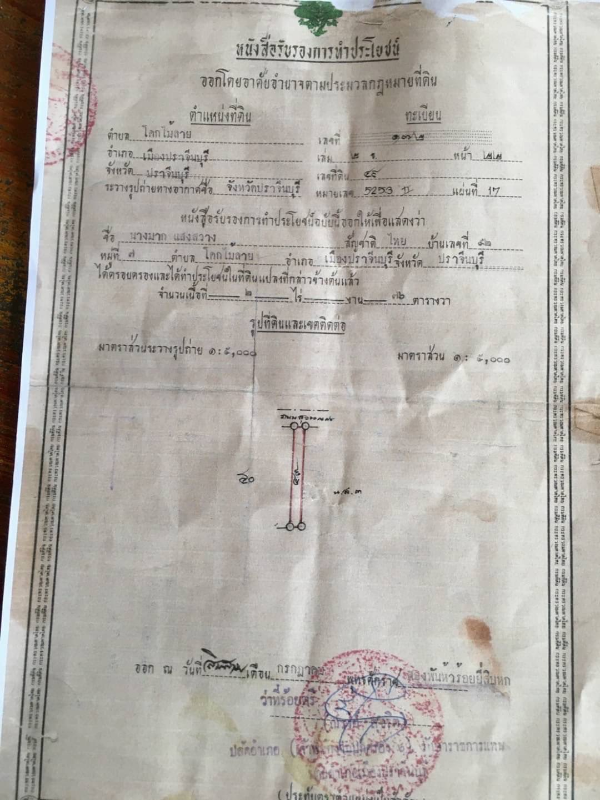 หนังสือรับรองการทำประโยชน์
ออกโดยอาศัยอำนาจตามประมวลกฎหมายที่ดิน
ตำแหน่งที่ดิน ทะเบียน
ตำบล โคกไม้ลาย เลขที่
อำเภอ เมืองปราจีนบุรี เล่ม หน้า ๒๒
จังหวัด ปราจีนบุรี เลขที่ดิน ๔๕
ระวางรูปถ่ายทางอากาศชื่อ จังหวัดปราจีนบุรี หมายเลข 5253 แผ่นที่ 17
หนังสือรับรองการทำประโยชน์ฉบับนี้ออกให้เพื่อแสดงว่า
ชื่อ นางมาก แสงสว่าง สัญชาติ ไทย บ้านเลขที่
หมู่ที่ ๗ ตำบล โคกไม้ลาย อำเภอ เมืองปราจีนบุรี จังหวัด ปราจีนบุรี
ได้ครอบครองและได้ทำประโยชน์ในที่ดินแปลงที่กล่าวข้างต้นแล้ว
จำนวนเนื้อที่ ๒ ไร่ - งาน ๗๖ ตารางวา
รูปที่ดินและเขตติดต่อ
มาตราส่วนระวางรูปถ่าย ๑:๕,๐๐๐ มาตราส่วน ๑:๕,๐๐๐
๔๐ ๔๕ น.ส.๓
ออก ณ วันที่ เดือน กรกฎาคม พุทธศักราช สองพันห้าร้อยยี่สิบหก
ว่าที่ร้อยตรี
ปลัดอำเภอ รักษาราชการแทน